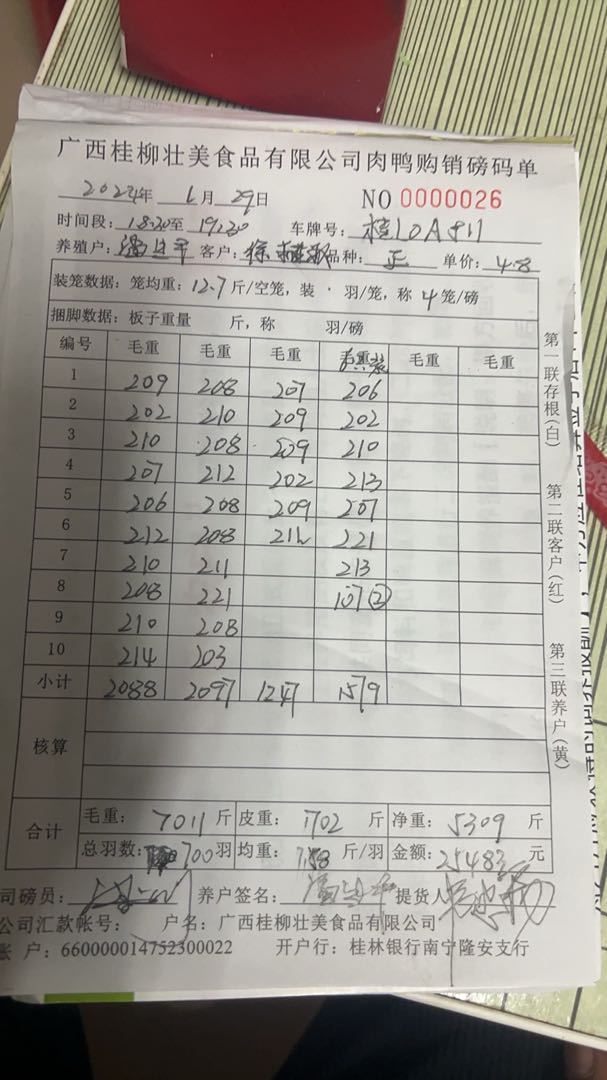 广西桂柳壮美食品有限公司肉鸭购销磅码单
2024年 6月 29日 NO 0000026
时间段: 18:30至 19:30 车牌号: 桂10A
养殖户: 客户: 徐 品种: 正 单价: 4.8
装笼数据: 笼均重: 12.7 斤/空笼, 装 羽/笼, 称 4 笼/磅
捆脚数据: 板子重量 斤, 称 羽/磅
编号 毛重 毛重 毛重 毛重 毛重
1 209 208 207 206
2 202 210 209 202
3 210 208 209 210
4 207 212 202 213
5 206 208 209 207
6 212 208 211 221
7 210 211 213
8 208 221 107②
9 210 208
10 214 203
小计 2088 2097 1247 1579
核算
合计
毛重: 7011 斤 皮重: 1702 斤 净重: 5309 斤
总羽数: 700 羽 均重: 7.58 斤/羽 金额: 25483 元
司磅员: 养户签名: 提货人
公司汇款帐号: 户名: 广西桂柳壮美食品有限公司
账 户: 660000014752300022 开户行: 桂林银行南宁隆安支行
第一联存根(白)
第二联客户(红)
第三联养户(黄)